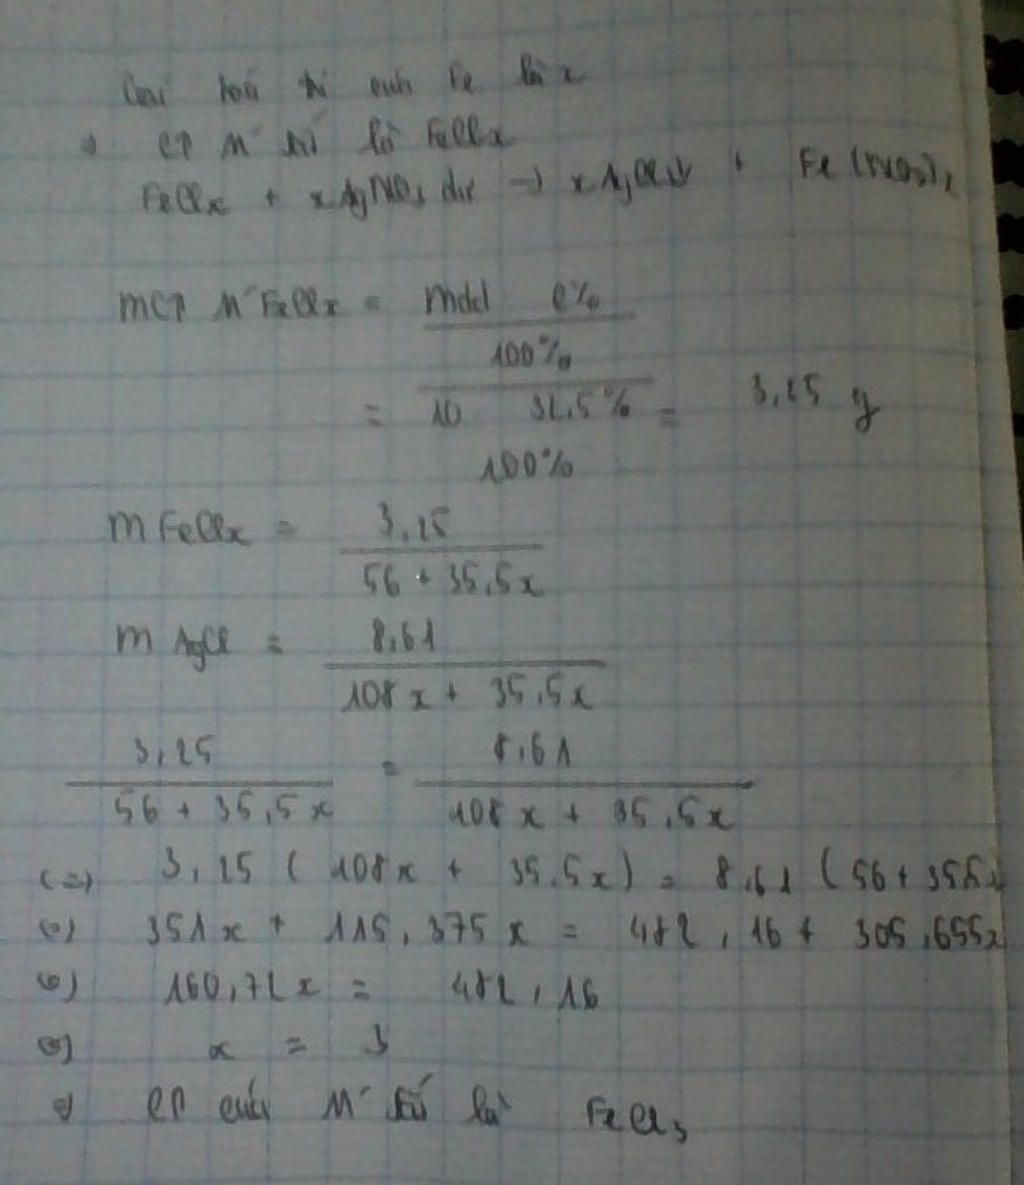 Gọi hoá trị của Fe là x
=> CT M' sắt là FeClx
FeClx + xAgNO3 dư -> xAgCl↓ + Fe(NO3)x
mCT M' FeClx = mdd C%
100%
= 10 32,5% = 3,25 g
100%
m FeClx = 3,25
56 + 35,5x
m AgCl = 8,61
108x + 35,5x
3,25 = 8,61
56 + 35,5x 108x + 35,5x
(=) 3,25 (108x + 35,5x) = 8,61 (56 + 35,5x
(=) 351x + 115,375x = 482,16 + 305,655x
(=) 160,72x = 482,16
(=) x = 3
=> CT của M' sắt là FeCl3